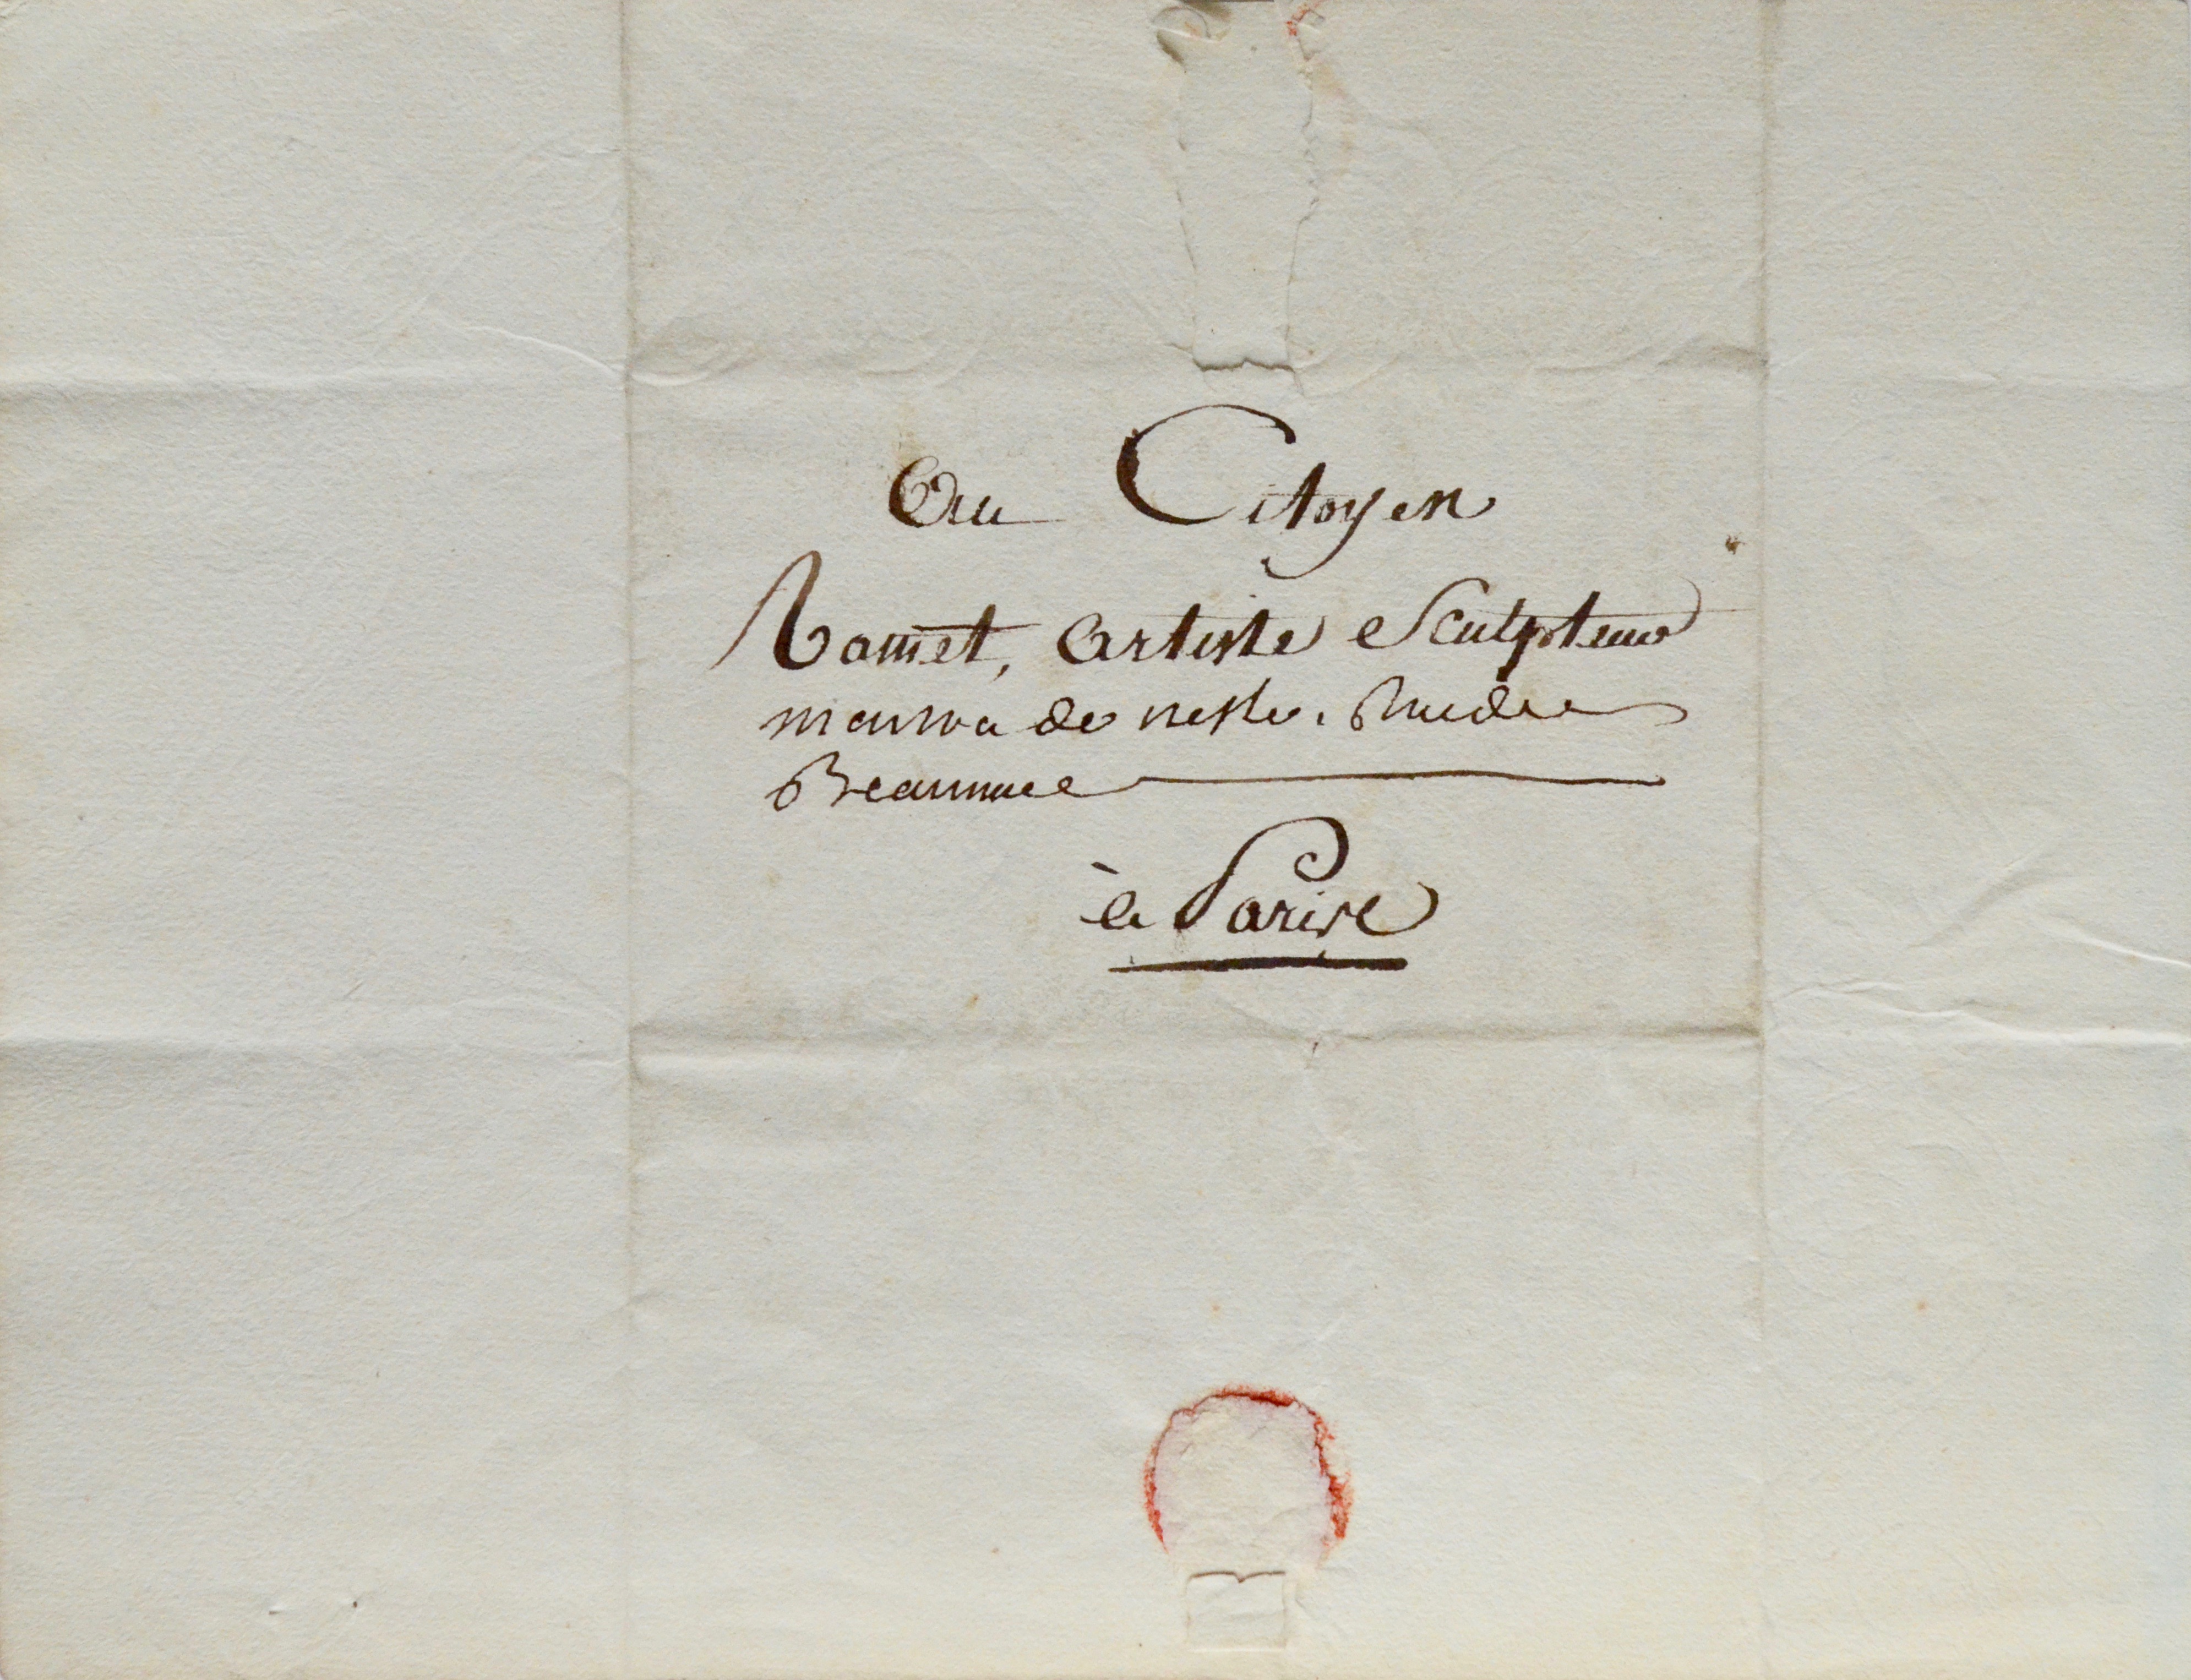 Au Citoyen
Ramet, Artiste Sculpteur
maison de nesle. Rue de
Beaunne
à Paris